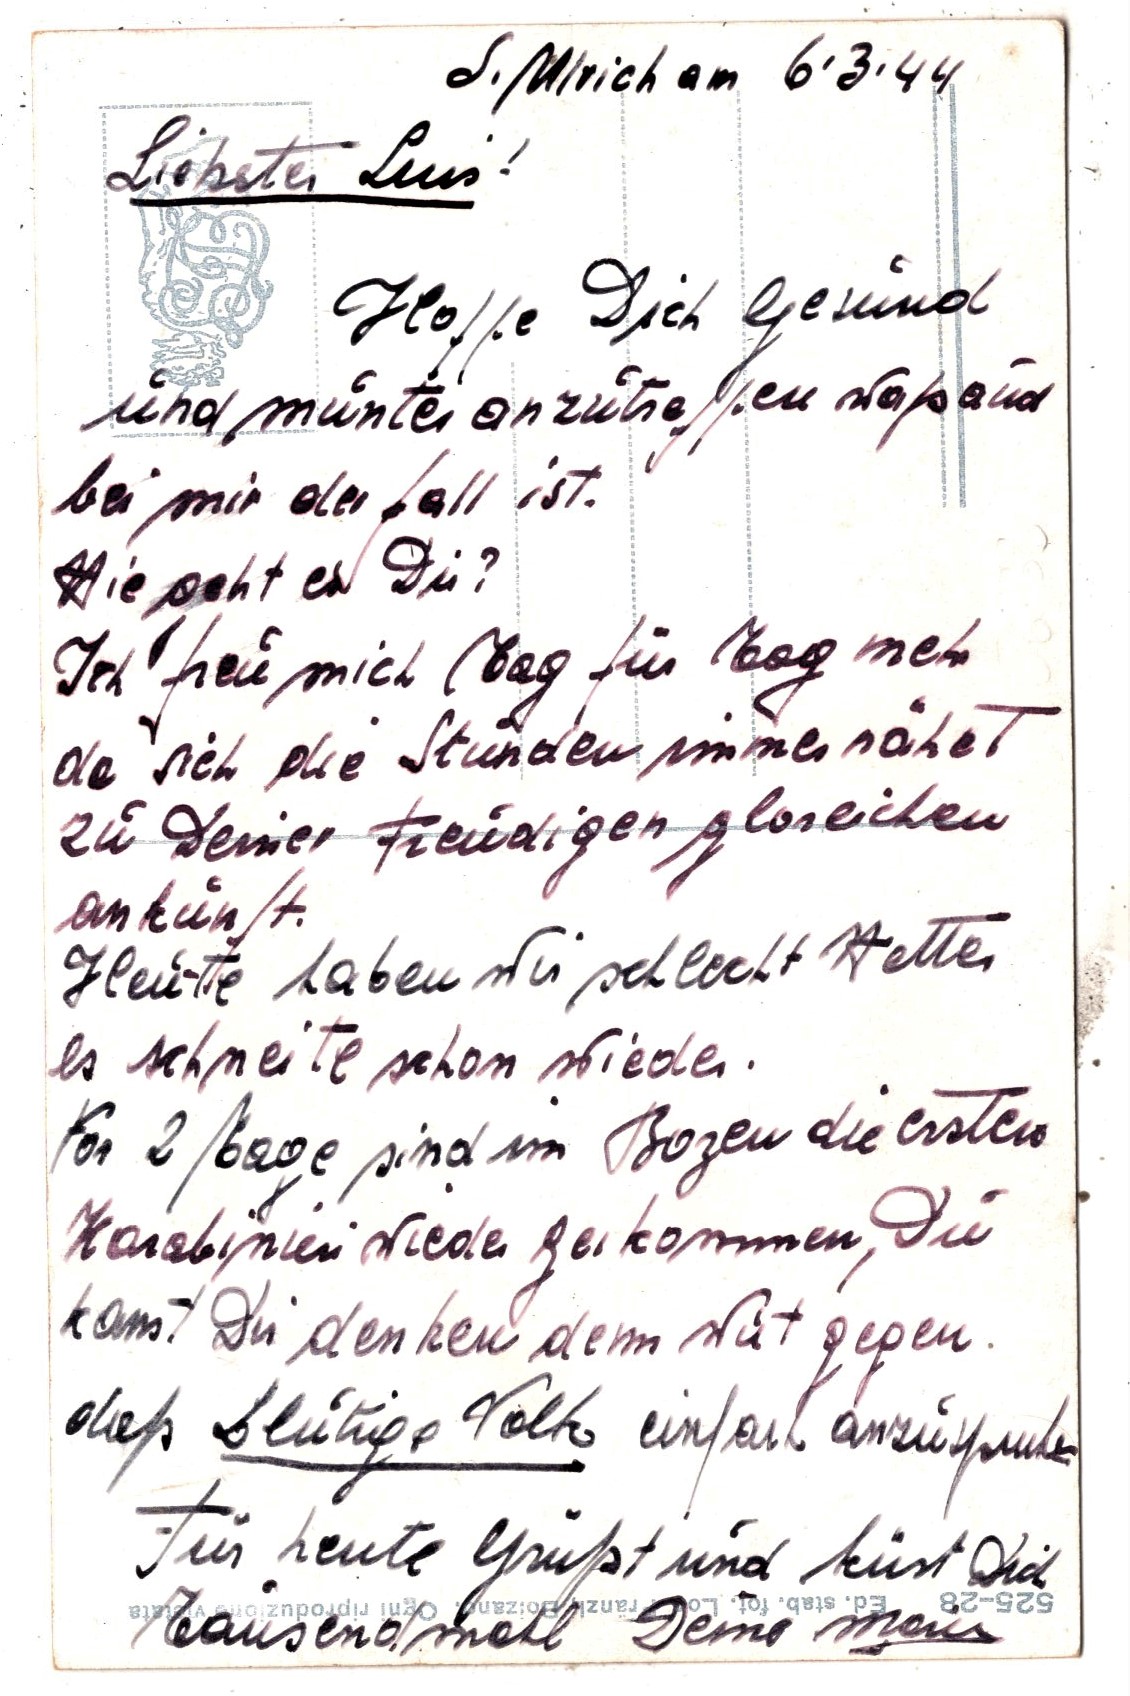 S. Ulrich am 6.3.44
Liebster Luis!
Hoffe Dich Gesund
und munter anzutreffen waß auch
bei mir der fall ist.
Wie geht es Dir?
Ich freu mich Tag für Tag mehr
da sich die Stunden immer nähert
zu Deiner Freudigen gloreichen
ankunft.
Heutte haben wir schlecht Wetter
es schneite schon wieder.
Vor 2 Tage sind im Bozen die ersten
Karabinieri wieder gekommen, Du
kanst Dir denken denn Wut gegen
dieß Blutige Volk einfach anzuspucken
Für heute Grüßt und küst Dich
Tausendmahl Deine
525-28 Ed. stab. fot. Lor. Fränzl, Bolzano. Ogni riproduzione vietata